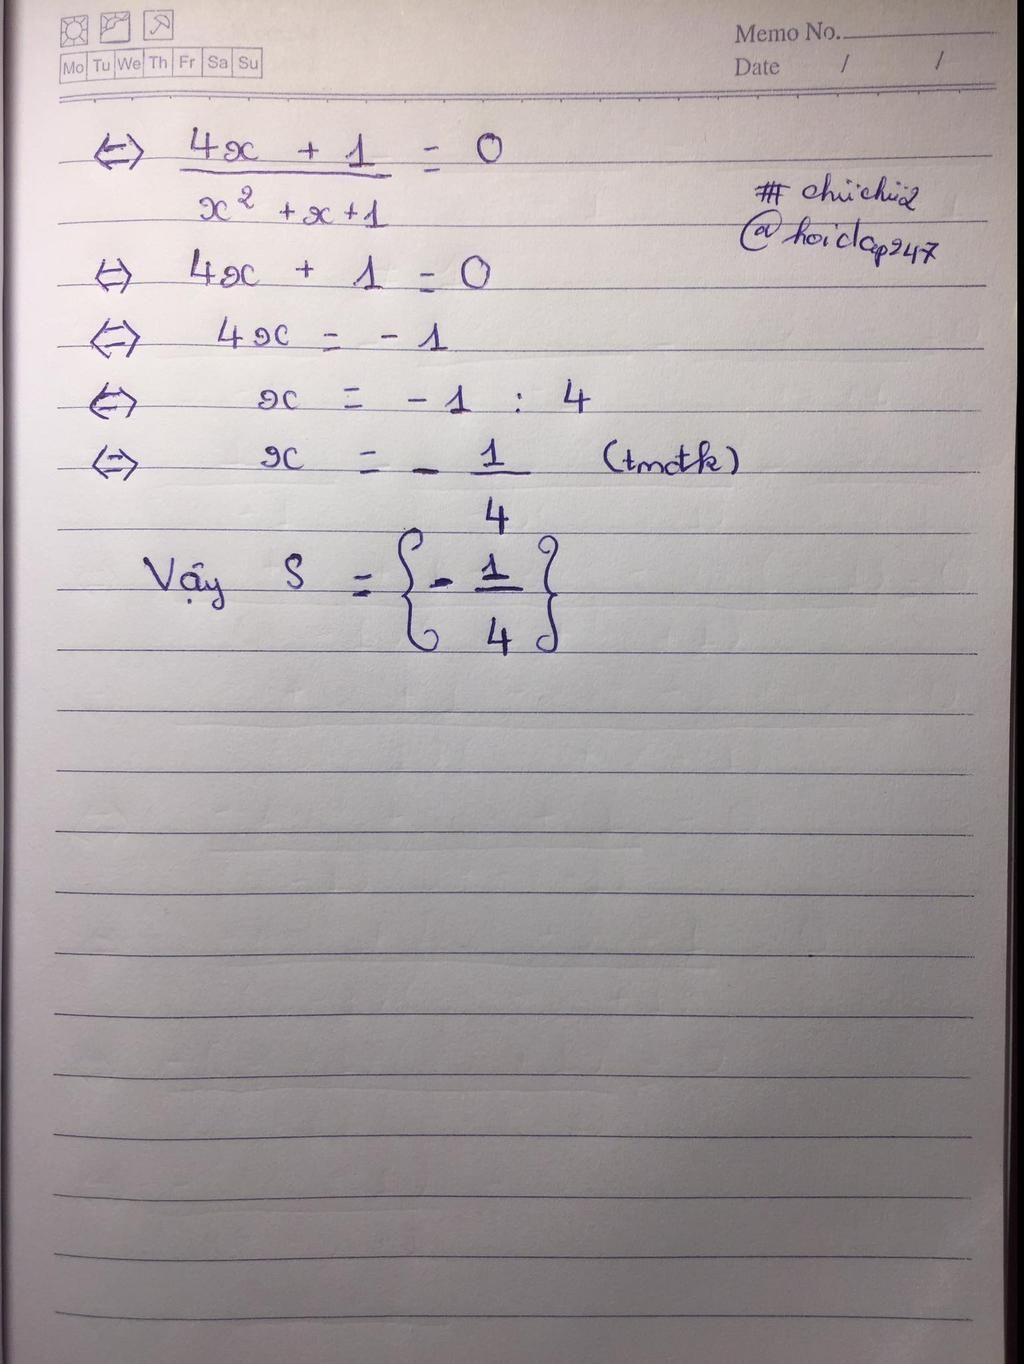 Memo No.
Mo Tu We Th Fr Sa Su
Date / /
⇔ 4x + 1 / x² + x + 1 = 0
# chiichii2
@hoidap247
⇔ 4x + 1 = 0
⇔ 4x = - 1
⇔ x = - 1 : 4
⇔ x = - 1/4 (tmđk)
Vậy S = { - 1/4 }